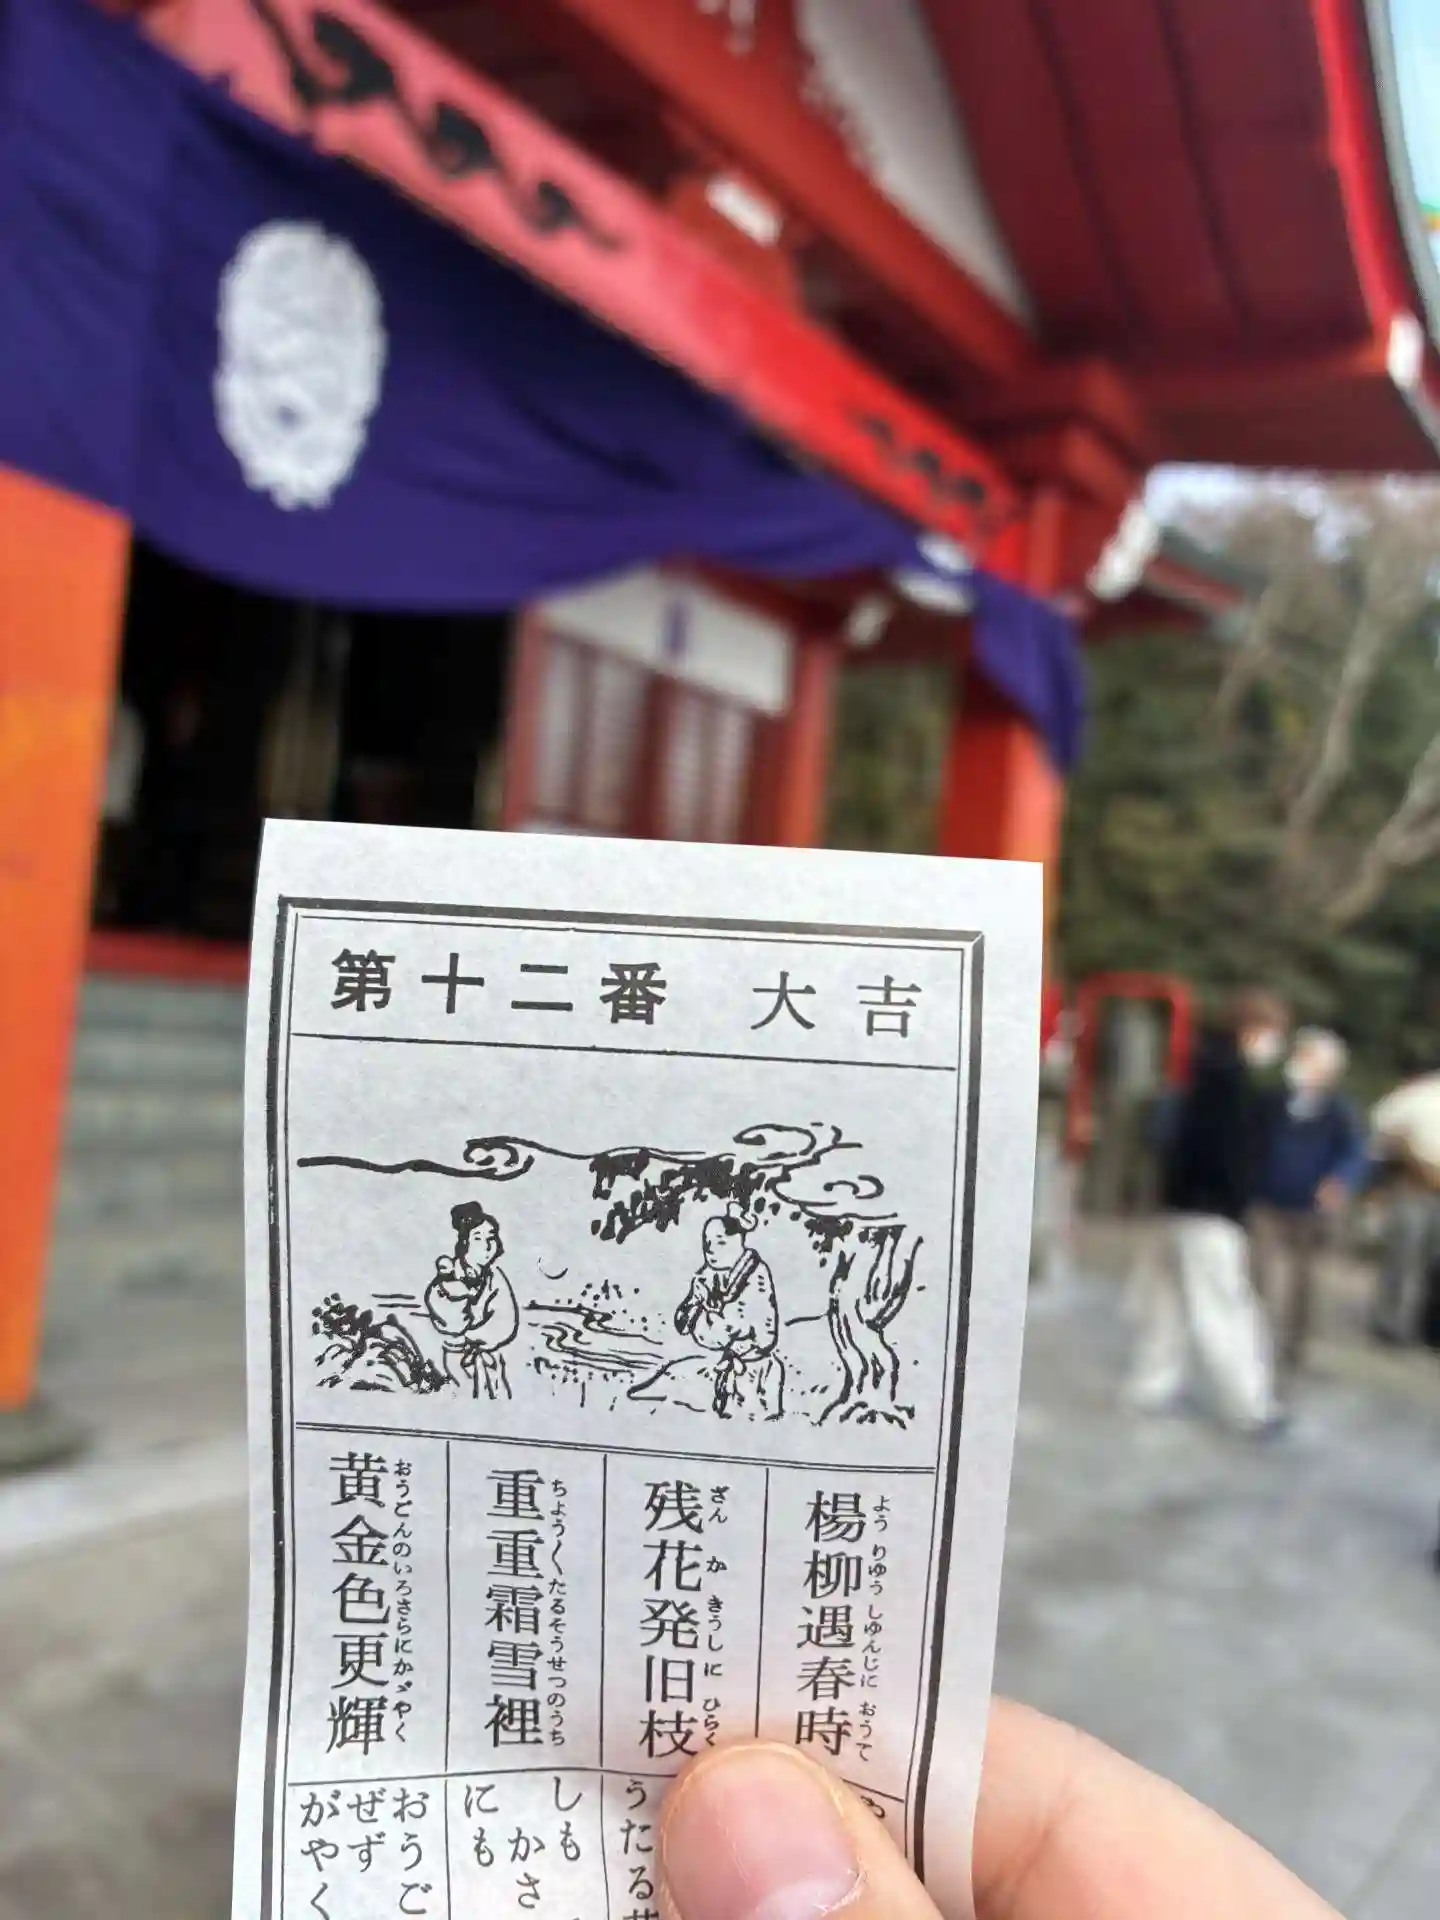 第十二番 大吉
楊柳遇春時
ようりゆうしゆんじにおうて
残花発旧枝
ざんかきうしにひらく
重重霜雪裡
ちよう〱たるそうせつのうち
黄金色更輝
おうごんのいろさらにかゞやく
うたる
しも
かさ
にも
おうご
ぜず
がやく